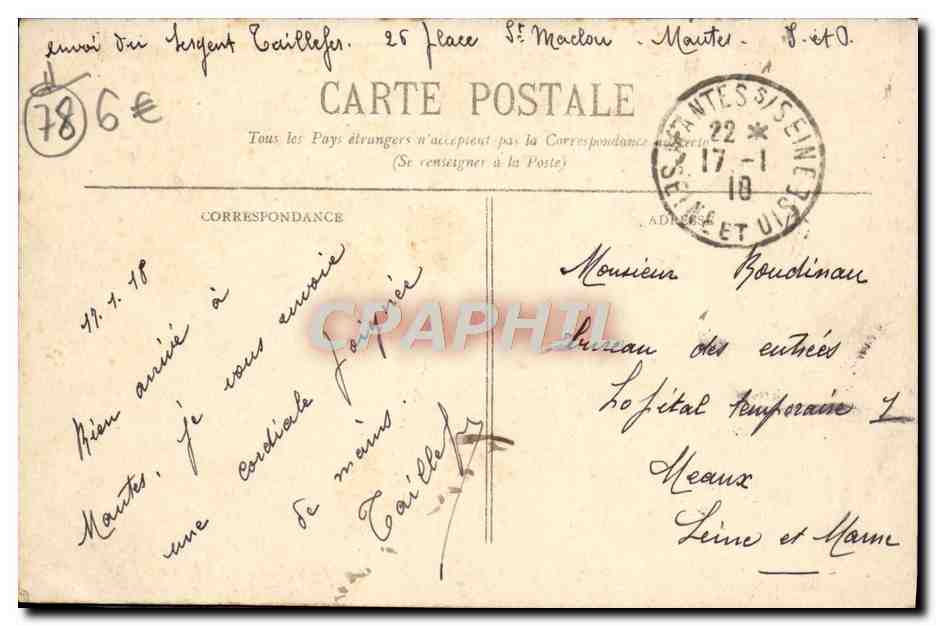 envoi du Sergent Taillefer. 26 place St Maclou - Mantes - S. et O.
78 6 €
CARTE POSTALE
Tous les Pays étrangers n'acceptent pas la Correspondance au recto
(Se renseigner à la Poste)
MANTES S/SEINE
22 *
17 -1
18
SEINE ET OISE
CORRESPONDANCE
ADRESSE
17.1.18
Bien arrivé à
Mantes. je vous envoie
une cordiale poignée
de mains.
Taillefer
Monsieur Boudinau
bureau des entrées
hopital temporaire 7
Meaux
Seine et Marne
CPAPHIL